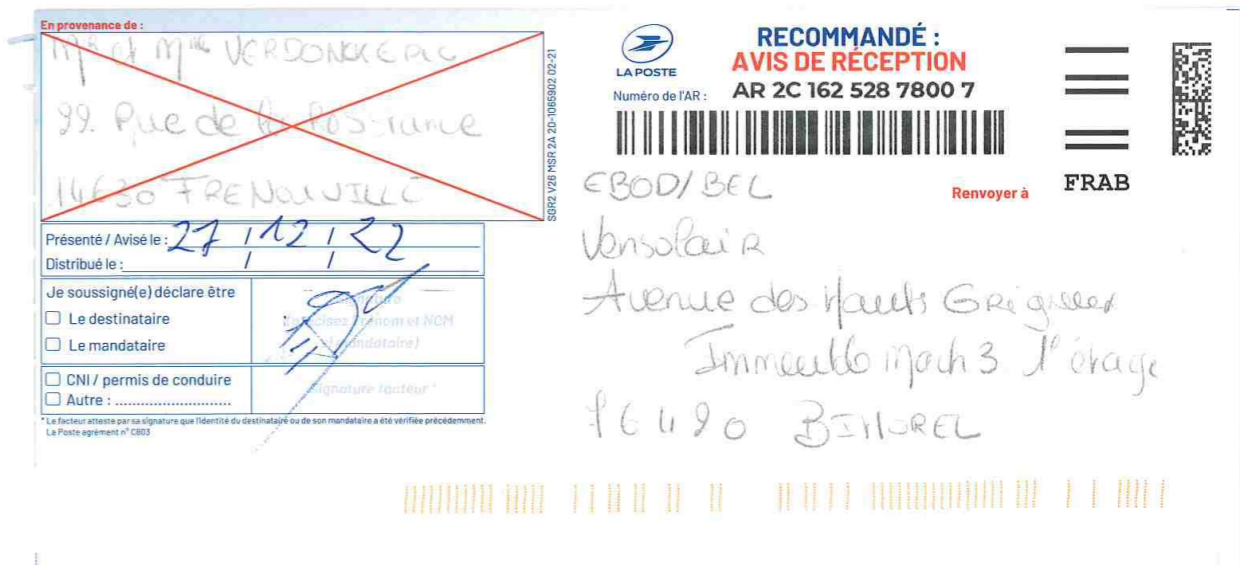 En provenance de :
Mr et Mme VERDONCK ERIC
99. Rue de la
14630 FRENOUVILLE
SGR2 V26 MSR 2A 2D-1085902 02-21
Présenté / Avisé le : 27 / 12 / 22
Distribué le : / /
Je soussigné(e) déclare être
Le destinataire
Le mandataire
Signature
(Précisez Prénom et NOM
si mandataire)
CNI / permis de conduire
Autre : ............................
Signature facteur *
* Le facteur atteste par sa signature que l'identité du destinataire ou de son mandataire a été vérifiée précédemment.
La Poste agrément n° C803
LA POSTE
RECOMMANDÉ :
AVIS DE RÉCEPTION
Numéro de l'AR : AR 2C 162 528 7800 7
Renvoyer à
FRAB
EBOD/BEL
Vensolair
Avenue des Hauts Grigneux
Immeuble Mach 3 1° étage
76420 BIHOREL